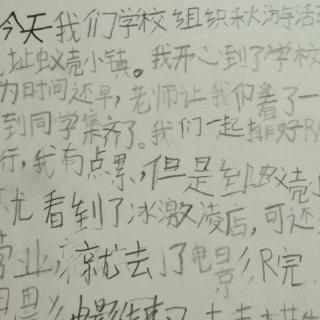 今天我们学校组织秋游活动
址蚁蔻小镇。我开心到了学校
为时间还早,老师让我们看了一
到同学集齐了。我们一起排好队
行,我有点累,但是到蚁蔻
就看到了冰激凌店,可还
营业,就去了电影院
电影